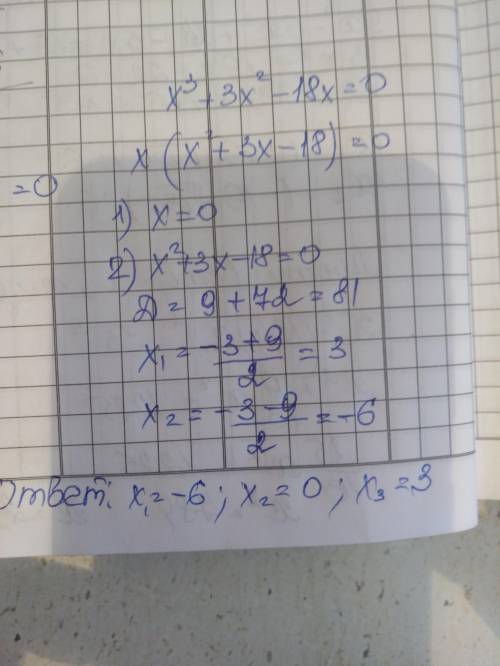 x³+3x²-18x=0
x(x²+3x-18)=0
=0
1) x=0
2) x²+3x-18=0
D= 9+72=81
x₁= (-3+9)/2 = 3
x₂= (-3-9)/2 = -6
Ответ: x₁=-6; x₂=0; x₃=3